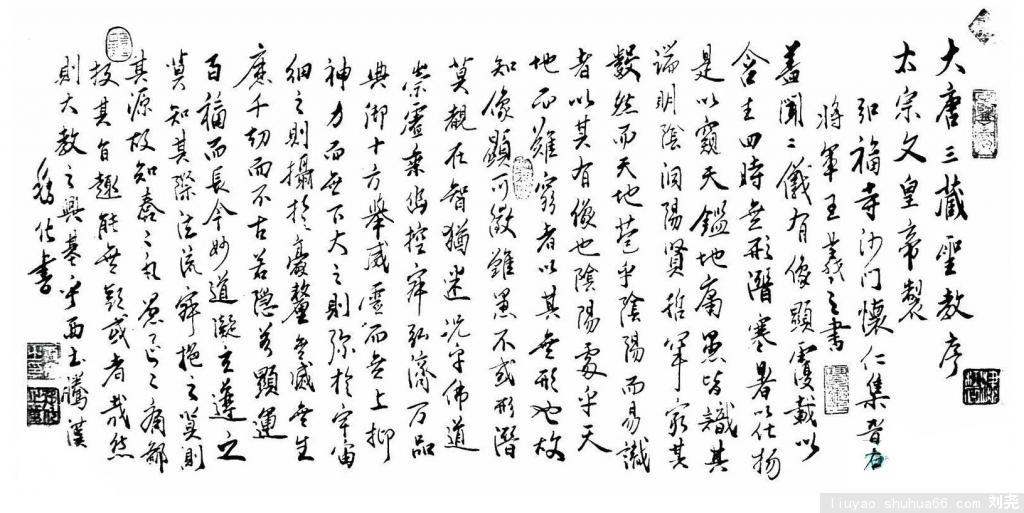 大唐三藏聖教序
太宗文皇帝製
弘福寺沙门懷仁集晉右
将軍王羲之書
蓋聞二儀有像顯覆載以
含生四時無形潛寒暑以化物
是以窺天鑑地庸愚皆識其
端明陰洞陽賢哲罕窮其
數然而天地苞乎陰陽而易識
者以其有像也陰陽處乎天
地而難窮者以其無形也故
知像顯可徵雖愚不惑形潛
莫覩在智猶迷况乎佛道
崇虛乘幽控寂弘濟万品
典御十方舉威靈而無上抑
神力而無下大之則弥於宇宙
細之則攝於毫釐無滅無生
歷千劫而不古若隱若顯運
百福而長今妙道凝玄遵之
莫知其際法流寂挹之莫測
其源故知蠢々凡愚區々庸鄙
投其旨趣能無疑惑者哉然
則大教之興基乎西土騰漢
書
liuyao.shuhua66.com 刘尧